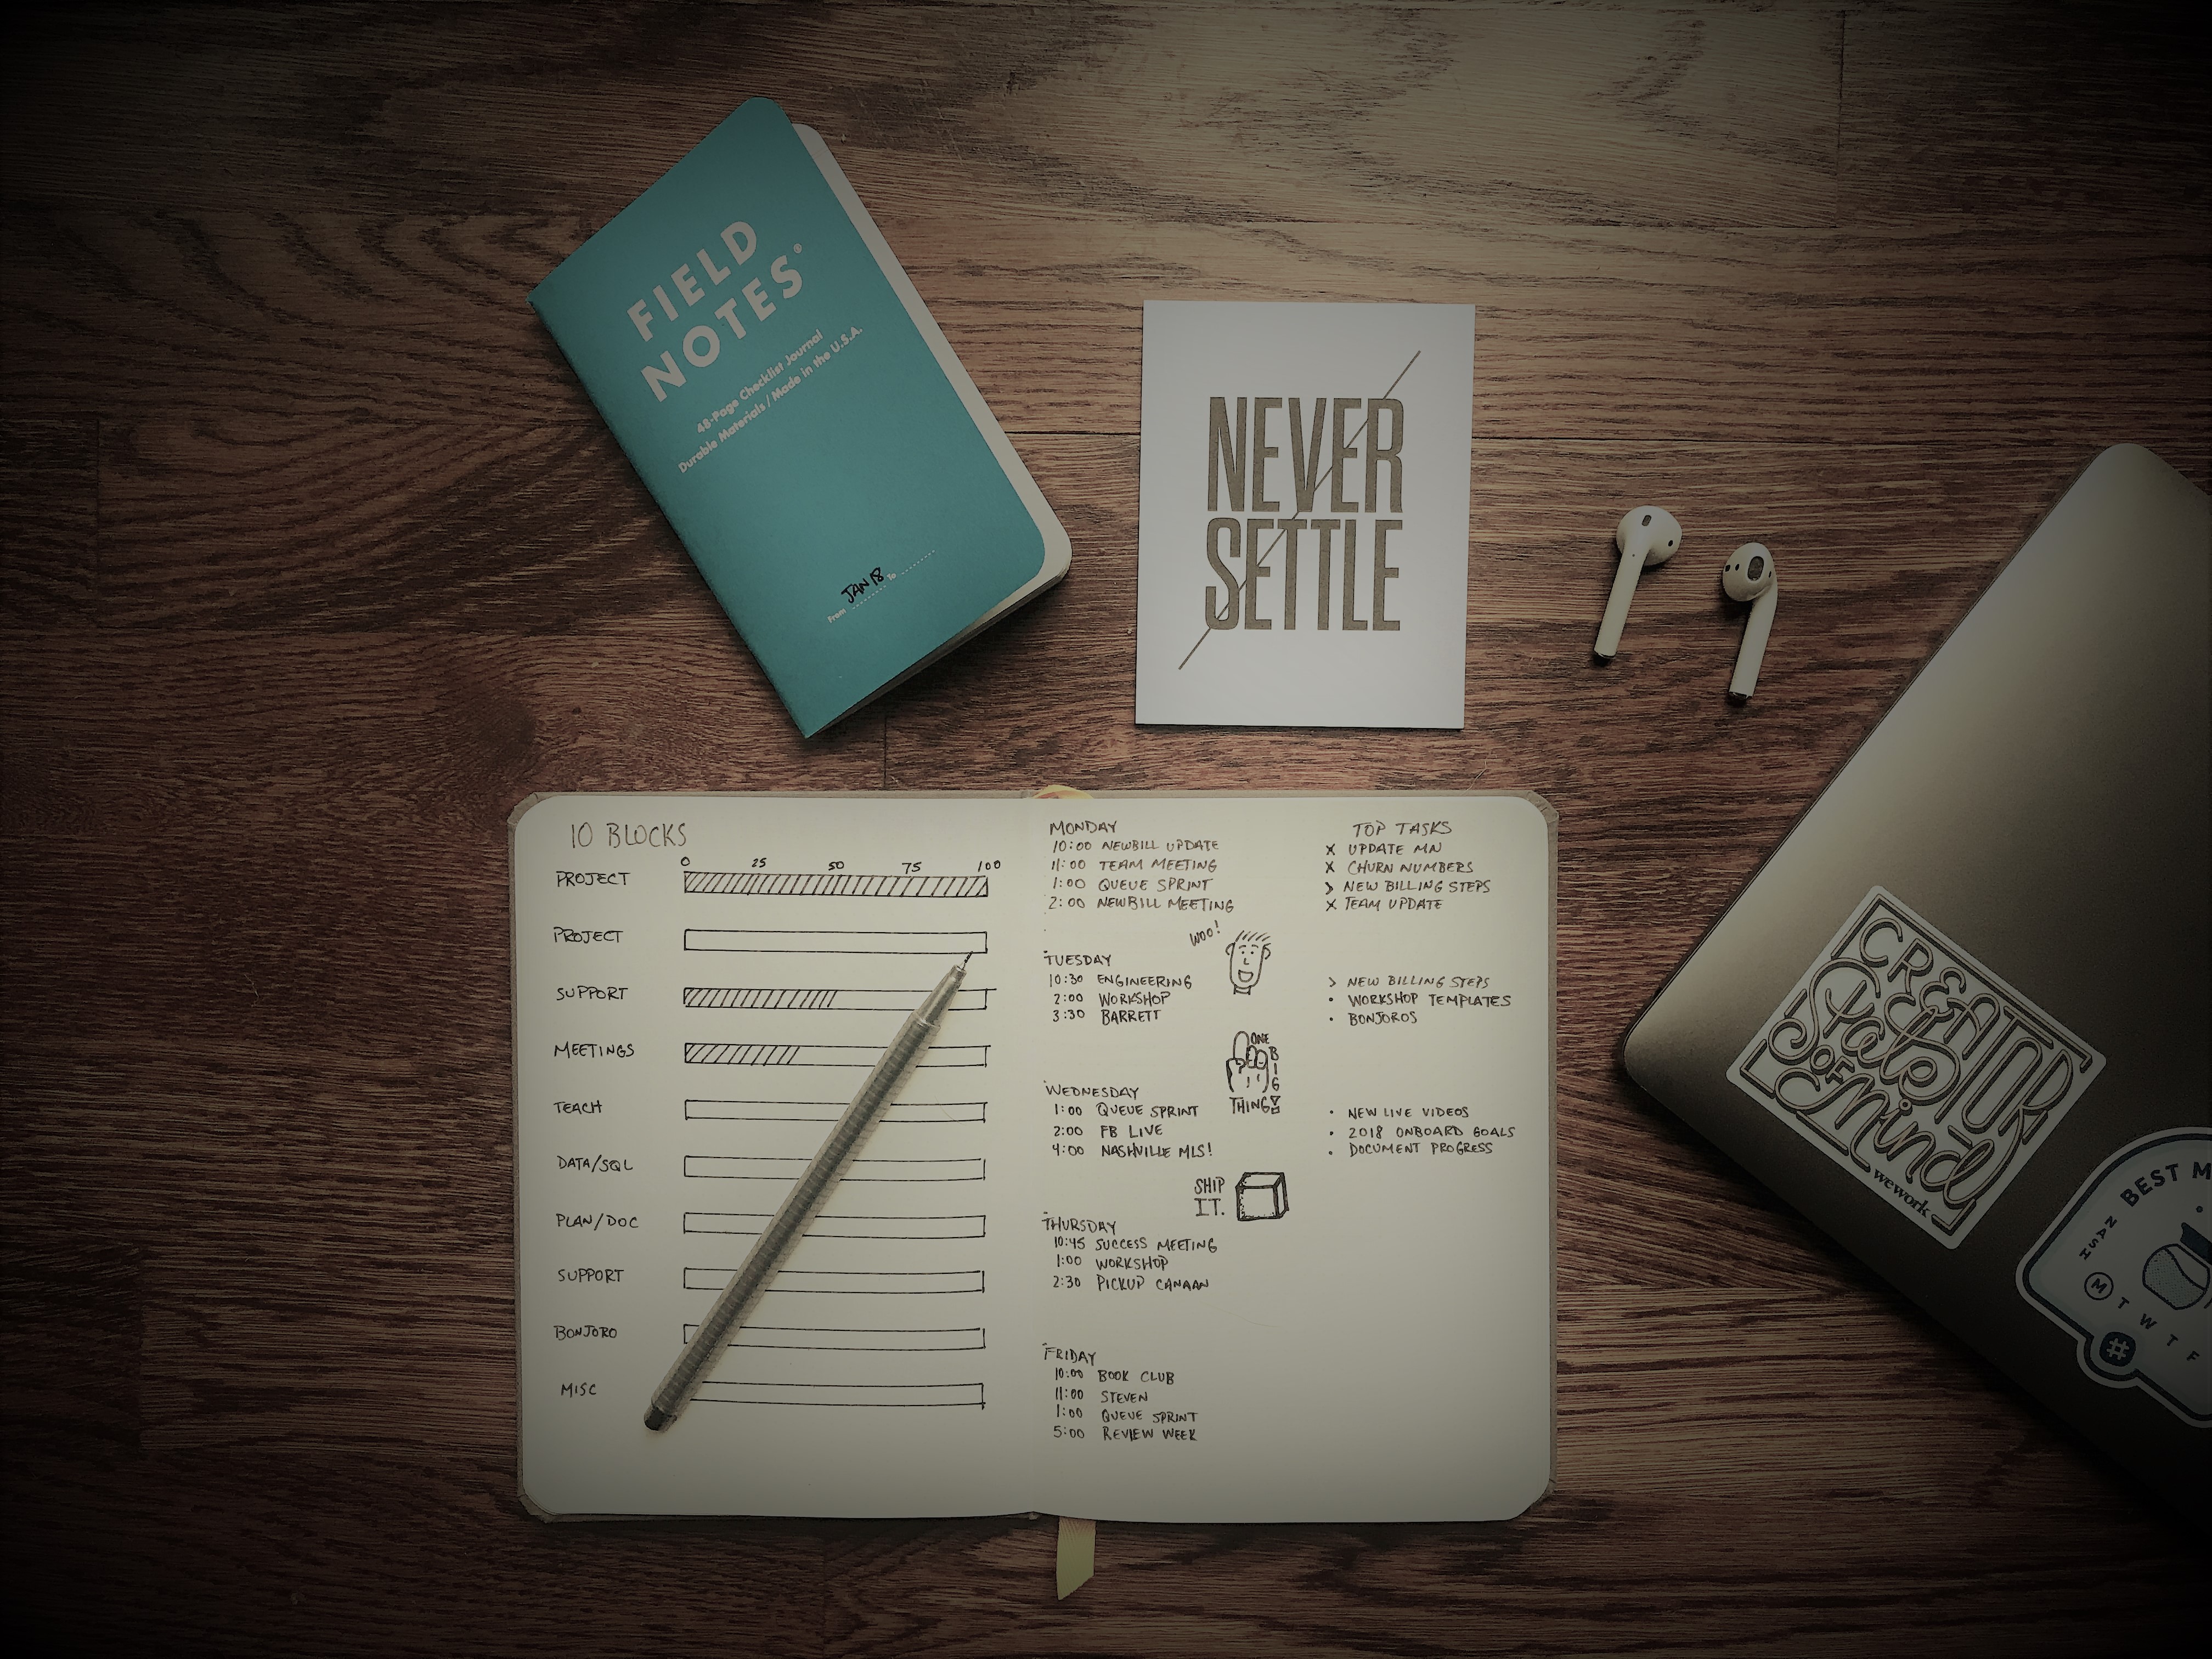 FIELD
NOTES®
48-Page Checklist Journal
Durable Materials / Made in the U.S.A.
From JAN 18 To
NEVER
SETTLE
10 BLOCKS
0 25 50 75 100
PROJECT
PROJECT
SUPPORT
MEETINGS
TEACH
DATA/SQL
PLAN/DOC
SUPPORT
BONJORO
MISC
MONDAY
10:00 NEWBILL UPDATE
11:00 TEAM MEETING
1:00 QUEUE SPRINT
2:00 NEWBILL MEETING
WOO!
TUESDAY
10:30 ENGINEERING
2:00 WORKSHOP
3:30 BARRETT
ONE
BIG
THING!
WEDNESDAY
1:00 QUEUE SPRINT
2:00 FB LIVE
4:00 NASHVILLE MLS!
SHIP
IT.
THURSDAY
10:45 SUCCESS MEETING
1:00 WORKSHOP
2:30 PICKUP CANAAN
FRIDAY
10:00 BOOK CLUB
11:00 STEVEN
1:00 QUEUE SPRINT
5:00 REVIEW WEEK
TOP TASKS
x UPDATE MN
x CHURN NUMBERS
> NEW BILLING STEPS
x TEAM UPDATE
> NEW BILLING STEPS
• WORKSHOP TEMPLATES
• BONJOROS
• NEW LIVE VIDEOS
• 2018 ONBOARD GOALS
• DOCUMENT PROGRESS
CREATOR
State
OF
Mind
wework
BEST M
NASH
M T W T F
#